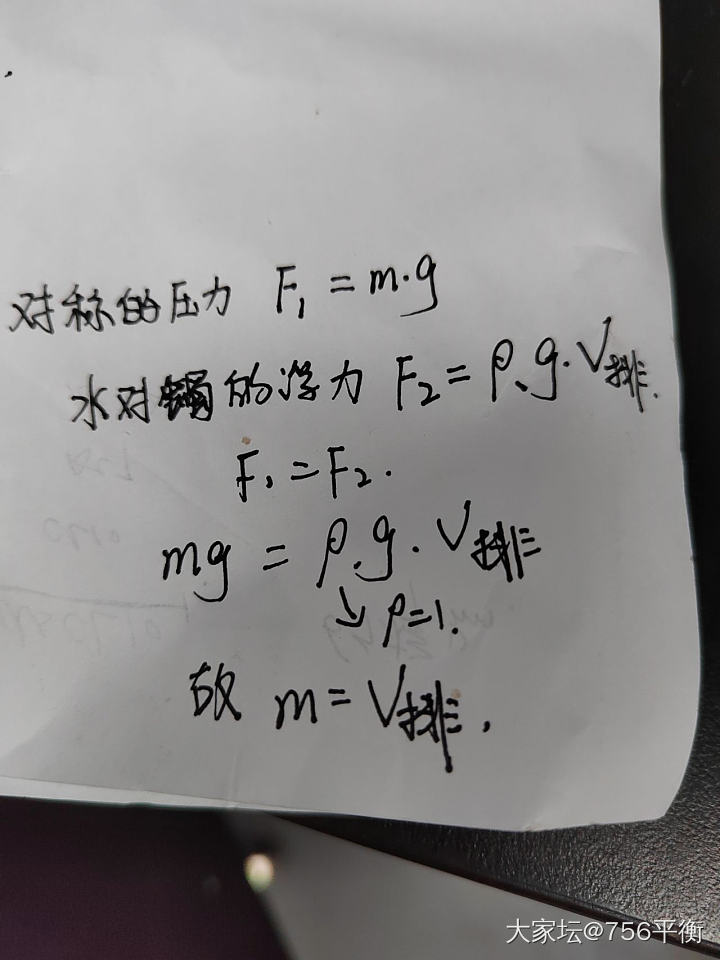 对称的压力 F₁ = m·g
水对镯的浮力 F₂ = ρ.g.V排.
F₁ = F₂.
mg = ρ.g.V排
↘ ρ=1.
故 m = V排.
大家坛@756平衡